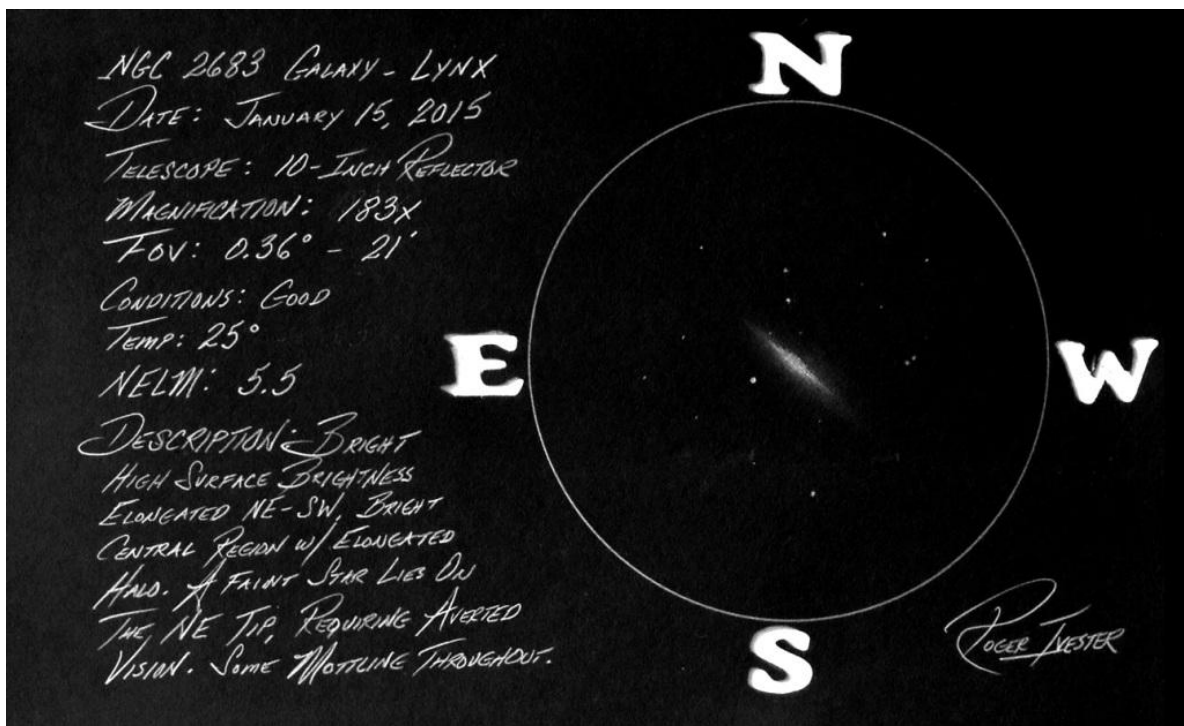 NGC 2683 GALAXY - LYNX
DATE: JANUARY 15, 2015
TELESCOPE: 10-INCH REFLECTOR
MAGNIFICATION: 183X
FOV: 0.36° - 21'
CONDITIONS: GOOD
TEMP: 25°
NELM: 5.5
DESCRIPTION: BRIGHT
HIGH SURFACE BRIGHTNESS
ELONGATED NE-SW, BRIGHT
CENTRAL REGION W/ ELONGATED
HALO. A FAINT STAR LIES ON
THE, NE TIP, REQUIRING AVERTED
VISION. SOME MOTTLINE THROUGHOUT.
N
E
W
S
ROGER IVESTER